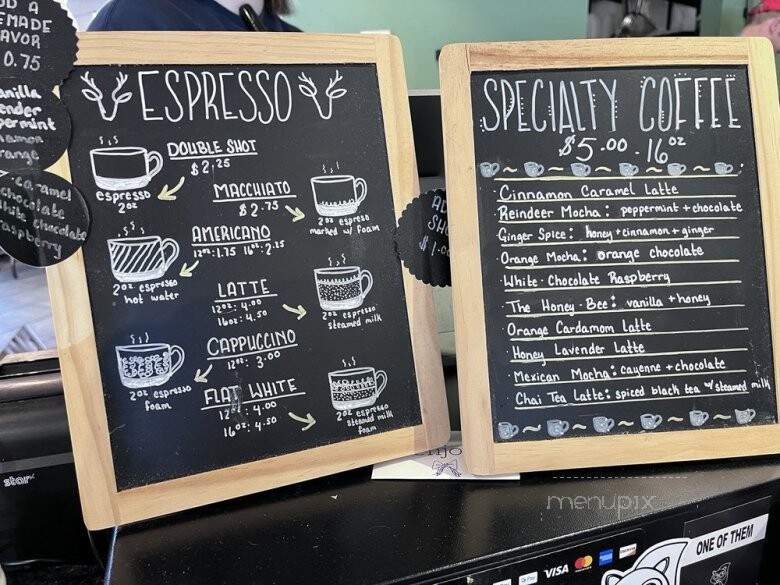 D A
EMADE
AVOR
0.75
anilla
ender
permint
namon
range
caramel
chocolate
white chocolate
raspberry
ESPRESSO
DOUBLE SHOT
$2.25
espresso
2oz
MACCHIATO
$2.75
2oz espreso
marked w/ foam
AMERICANO
12oz: 1.75 16oz: 2.15
2oz espresso
hot water
LATTE
12oz: 4.00
16oz: 4.50
2oz espresso
steamed milk
CAPPUCCINO
12oz: 3.00
2oz espresso
foam
FLAT WHITE
12oz: 4.00
16oz: 4.50
2oz espresso
steamed milk
foam
AD
SHO
$1.00
SPECIALTY COFFEE
$5.00 - 16oz
· Cinnamon Caramel Latte
· Reindeer Mocha: peppermint + chocolate
· Ginger Spice: honey + cinnamon + ginger
· Orange Mocha: orange chocolate
· White Chocolate Raspberry
· The Honey Bee: vanilla + honey
· Orange Cardamom Latte
· Honey Lavender Latte
· Mexican Mocha: cayenne + chocolate
· Chai Tea Latte: spiced black tea w/ steamed milk
star
njo
menupix
VISA
ONE OF THEM